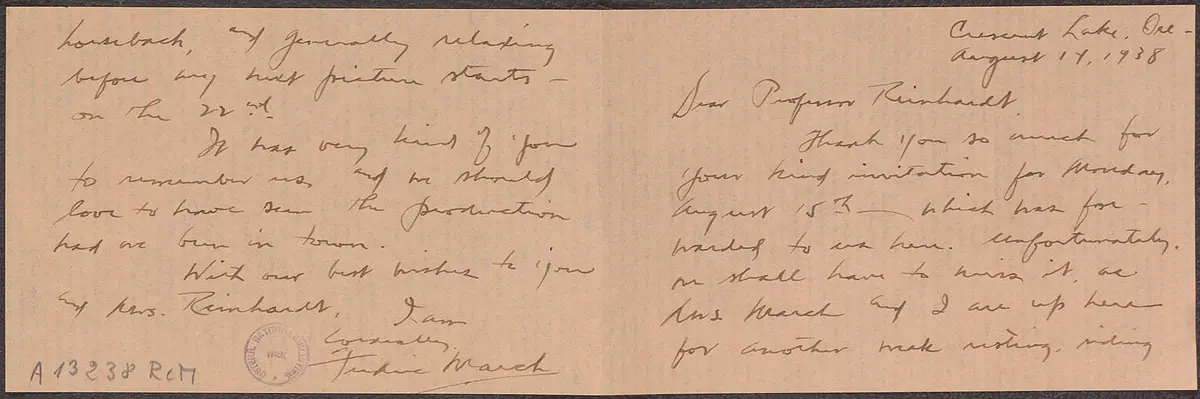 Crescent Lake, Ore-
August 14, 1938
Dear Professor Reinhardt
Thank you so much for
your kind invitation for Monday,
August 15th — which was for-
warded to us here. Unfortunately,
we shall have to miss it, as
Mrs. March and I are up here
for another week resting, riding
horseback, and generally relaxing
before my next picture starts —
on the 22nd.
It was very kind of you
to remember us, and we should
love to have seen the production
had we been in town.
With our best wishes to you
and Mrs. Reinhardt,
I am
Cordially,
Fredric March
A 13238 ReM
NATIONALBIBLIOTHEK
WIEN